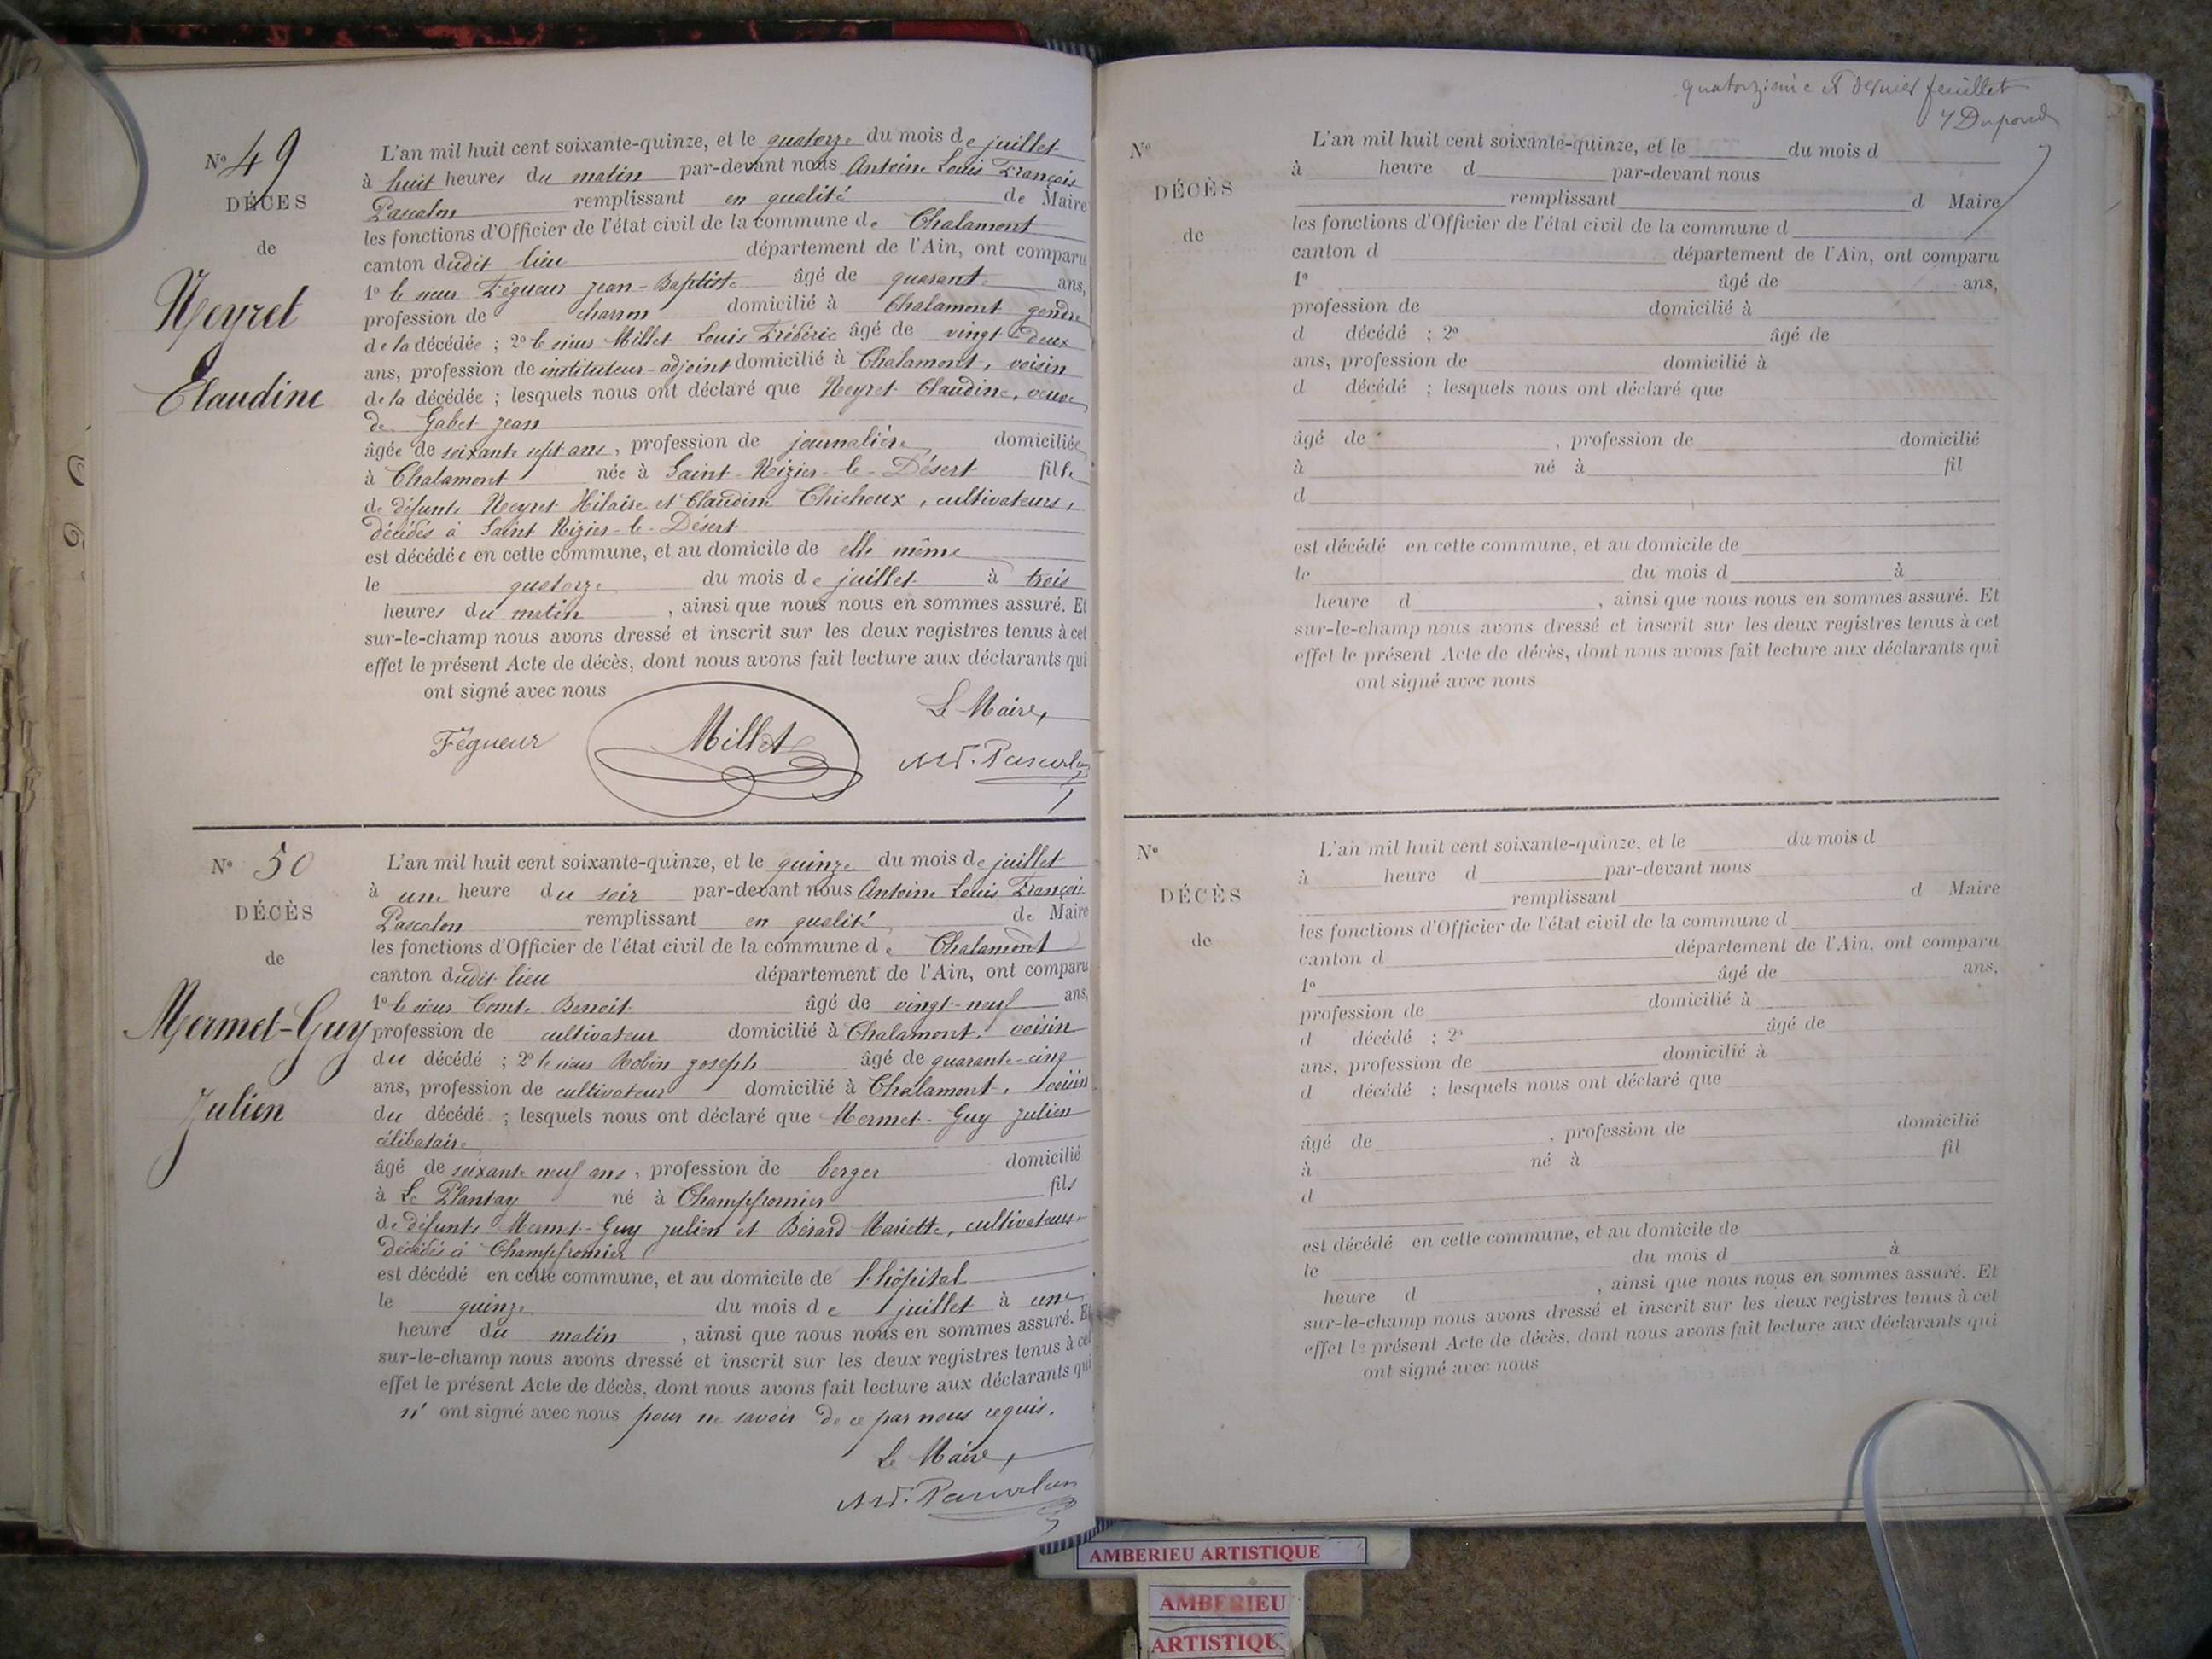 N° 49
DÉCES
de
Neyret
Claudine
L'an mil huit cent soixante-quinze, et le quatorze du mois de juillet
à huit heures du matin par-devant nous Antoine Louis François
Pascalon remplissant en qualité de Maire
les fonctions d'Officier de l'état civil de la commune de Chalamont
canton dudit lieu département de l'Ain, ont comparu
1° le sieur Fégueur Jean-Baptiste âgé de quarante ans,
profession de charron domicilié à Chalamont gendre
de la décédée ; 2° le sieur Millet Louis Frédéric âgé de vingt deux
ans, profession de instituteur-adjoint domicilié à Chalamont, voisin
de la décédée ; lesquels nous ont déclaré que Neyret Claudine, veuve
de Gabet Jean
âgée de soixante sept ans, profession de journalière domiciliée
à Chalamont née à Saint-Nizier-le-Désert fille
de défunts Neyret Hilaire et Claudine Chichoux, cultivateurs,
décédés à Saint Nizier-le-Désert
est décédée en cette commune, et au domicile de elle même
le quatorze du mois de juillet à trois
heures du matin, ainsi que nous nous en sommes assuré. Et
sur-le-champ nous avons dressé et inscrit sur les deux registres tenus à cet
effet le présent Acte de décès, dont nous avons fait lecture aux déclarants qui
ont signé avec nous
Le Maire,
Fégueur Millet Pascalon
N° 50
DÉCÈS
de
Mermet-Guy
Julien
L'an mil huit cent soixante-quinze, et le quinze du mois de juillet
à une heure du soir par-devant nous Antoine Louis François
Pascalon remplissant en qualité de Maire
les fonctions d'Officier de l'état civil de la commune de Chalamont
canton dudit lieu département de l'Ain, ont comparu
1° le sieur Comte Benoit âgé de vingt-neuf ans,
profession de cultivateur domicilié à Chalamont, voisin
du décédé ; 2° le sieur Robin Joseph âgé de quarante-cinq
ans, profession de cultivateur domicilié à Chalamont, voisin
du décédé ; lesquels nous ont déclaré que Mermet-Guy Julien
célibataire
âgé de soixante neuf ans, profession de berger domicilié
à Le Plantay né à Champfromier fils
de défunts Mermet-Guy Julien et Bérard Mariette, cultivateurs
décédés à Champfromier
est décédé en cette commune, et au domicile de l'hôpital
le quinze du mois de juillet à une
heure du matin, ainsi que nous nous en sommes assuré. Et
sur-le-champ nous avons dressé et inscrit sur les deux registres tenus à cet
effet le présent Acte de décès, dont nous avons fait lecture aux déclarants qui
n' ont signé avec nous pour ne savoir de ce par nous requis.
Le Maire,
Pascalon
quatorzième et dernier feuillet
Dupond
N°
DÉCÈS
de
L'an mil huit cent soixante-quinze, et le du mois d
à heure d par-devant nous
remplissant d Maire
les fonctions d'Officier de l'état civil de la commune d
canton d département de l'Ain, ont comparu
1° âgé de ans,
profession de domicilié à
d décédé ; 2° âgé de
ans, profession de domicilié à
d décédé ; lesquels nous ont déclaré que
âgé de , profession de domicilié
à né à fil
d
est décédé en cette commune, et au domicile de
le du mois d à
heure d , ainsi que nous nous en sommes assuré. Et
sur-le-champ nous avons dressé et inscrit sur les deux registres tenus à cet
effet le présent Acte de décès, dont nous avons fait lecture aux déclarants qui
ont signé avec nous
N°
DÉCÈS
de
L'an mil huit cent soixante-quinze, et le du mois d
à heure d par-devant nous
remplissant d Maire
les fonctions d'Officier de l'état civil de la commune d
canton d département de l'Ain, ont comparu
1° âgé de ans,
profession de domicilié à
d décédé ; 2° âgé de
ans, profession de domicilié à
d décédé ; lesquels nous ont déclaré que
âgé de , profession de domicilié
à né à fil
d
est décédé en cette commune, et au domicile de
le du mois d à
heure d , ainsi que nous nous en sommes assuré. Et
sur-le-champ nous avons dressé et inscrit sur les deux registres tenus à cet
effet le présent Acte de décès, dont nous avons fait lecture aux déclarants qui
ont signé avec nous
AMBERIEU ARTISTIQUE
AMBERIEU
ARTISTIQU